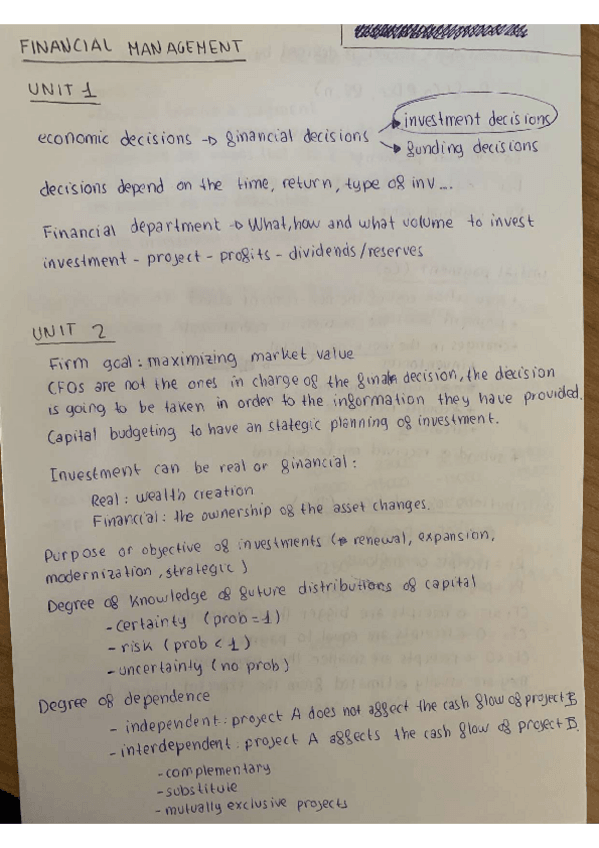 FINANCIAL MANAGEMENT
UNIT 1
economic decisions → financial decisions → investment decisions
→ funding decisions
decisions depend on the time, return, type of inv...
Financial department → What, how and what volume to invest
investment - project - profits - dividends/reserves
UNIT 2
Firm goal: maximizing market value
CFOs are not the ones in charge of the final decision, the decision
is going to be taken in order to the information they have provided.
Capital budgeting to have an stategic planning of investment.
Investment can be real or financial:
Real: wealth creation
Financial: the ownership of the asset changes.
Purpose or objective of investments (→ renewal, expansion,
modernization, strategic)
Degree of knowledge of future distributions of capital
- certainty (prob=1)
- risk (prob < 1)
- uncertainty (no prob)
Degree of dependence
- independent: project A does not affect the cash flow of project B
- interdependent: project A affects the cash flow of project B.
- complementary
- substitute
- mutually exclusive projects